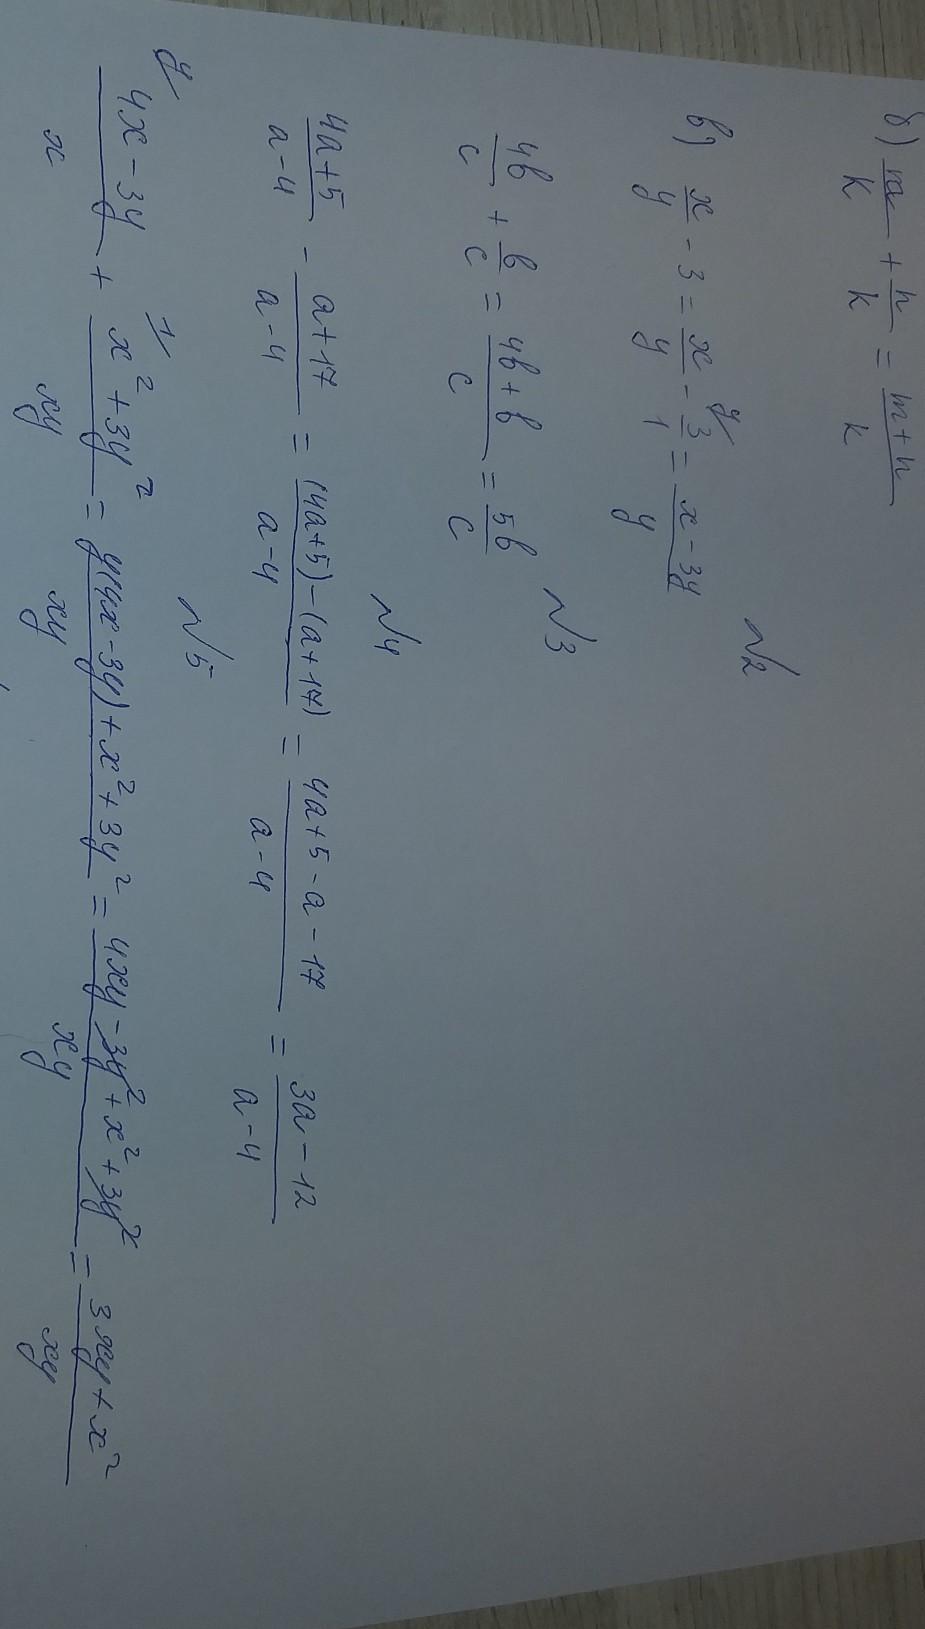 б) m/k + n/k = (m+n)/k
в) x/y - 3 = x/y - 3/1 y/ = (x-3y)/y
№2
4b/c + b/c = (4b+b)/c = 5b/c
№3
№4
(4a+5)/(a-4) - (a+17)/(a-4) = ((4a+5)-(a+17))/(a-4) = (4a+5-a-17)/(a-4) = (3a-12)/(a-4)
№5
y/ (4x-3y)/x + 1/ (x²+3y²)/xy = (y(4x-3y)+x²+3y²)/xy = (4xy-3y²+x²+3y²)/xy = (3xy+x²)/xy